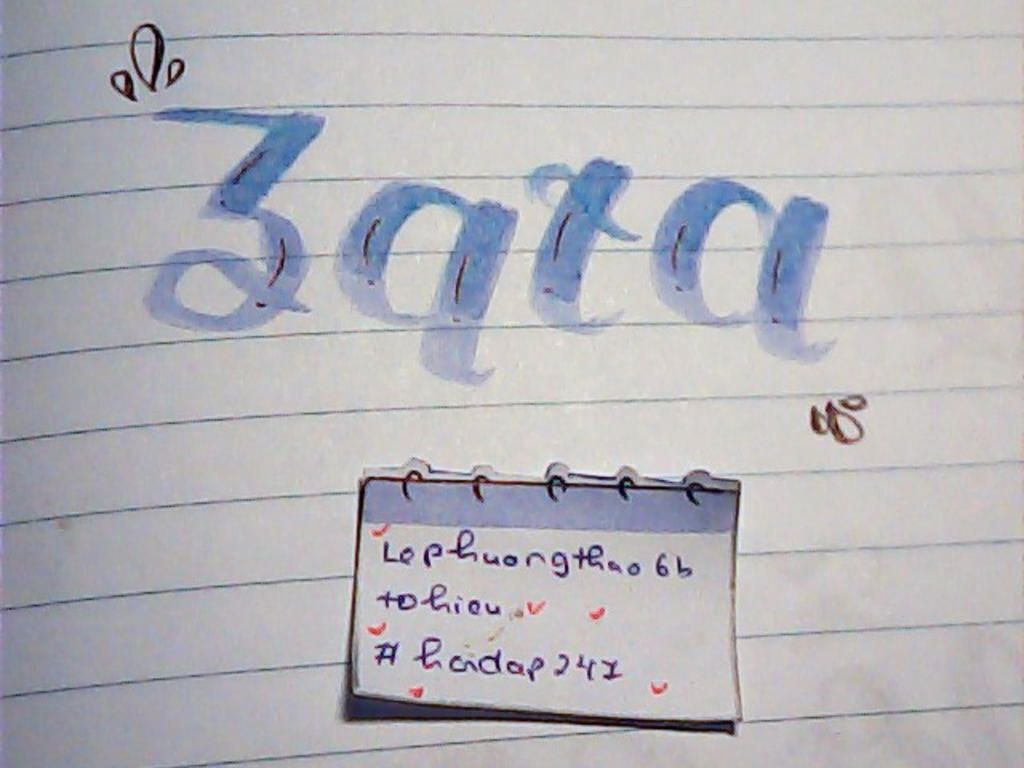 Zara
Lephuongthao 6b
tohieu
# hoidap247